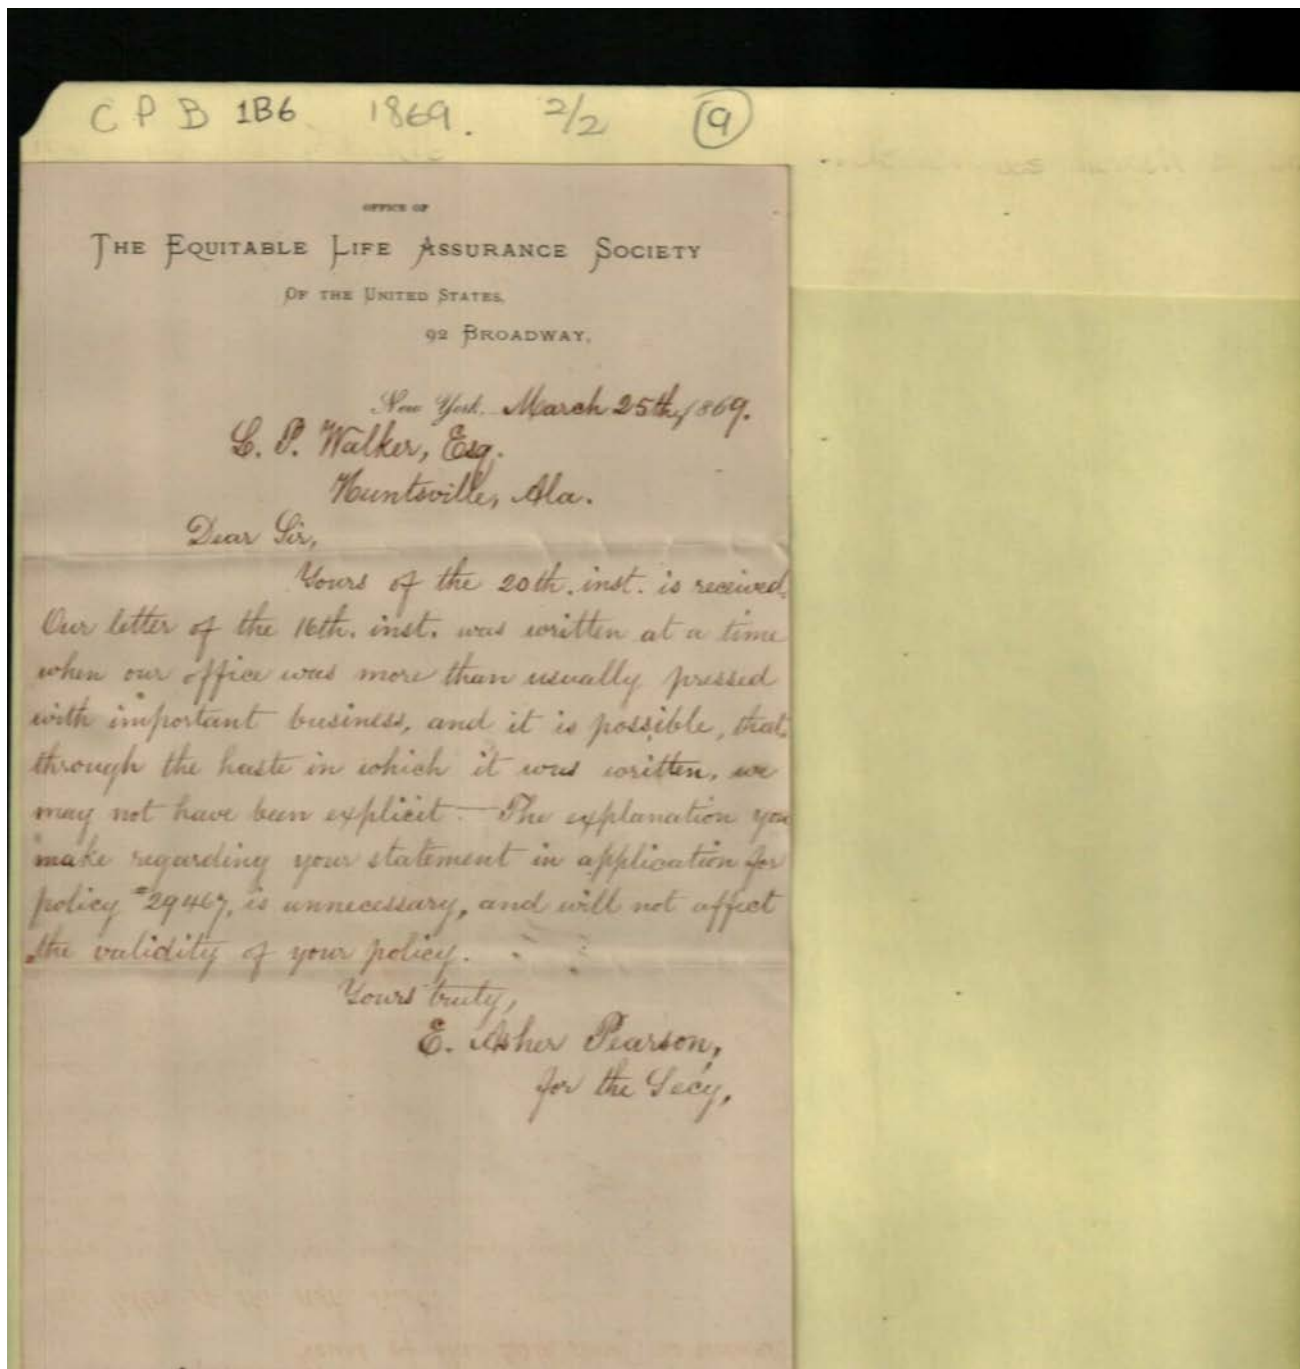 C P B 1B6 1869. 2/2 9
OFFICE OF
THE EQUITABLE LIFE ASSURANCE SOCIETY
OF THE UNITED STATES,
92 BROADWAY,
New York. March 25th, 1869.
L. P. Walker, Esq.
Huntsville, Ala.
Dear Sir,
Yours of the 20th. inst. is received.
Our letter of the 16th. inst. was written at a time
when our office was more than usually pressed
with important business, and it is possible, that,
through the haste in which it was written, we
may not have been explicit — The explanation you
make regarding your statement in application for
policy #29467, is unnecessary, and will not affect
the validity of your policy.
Yours truly,
E. Asher Pearson,
for the Secy,